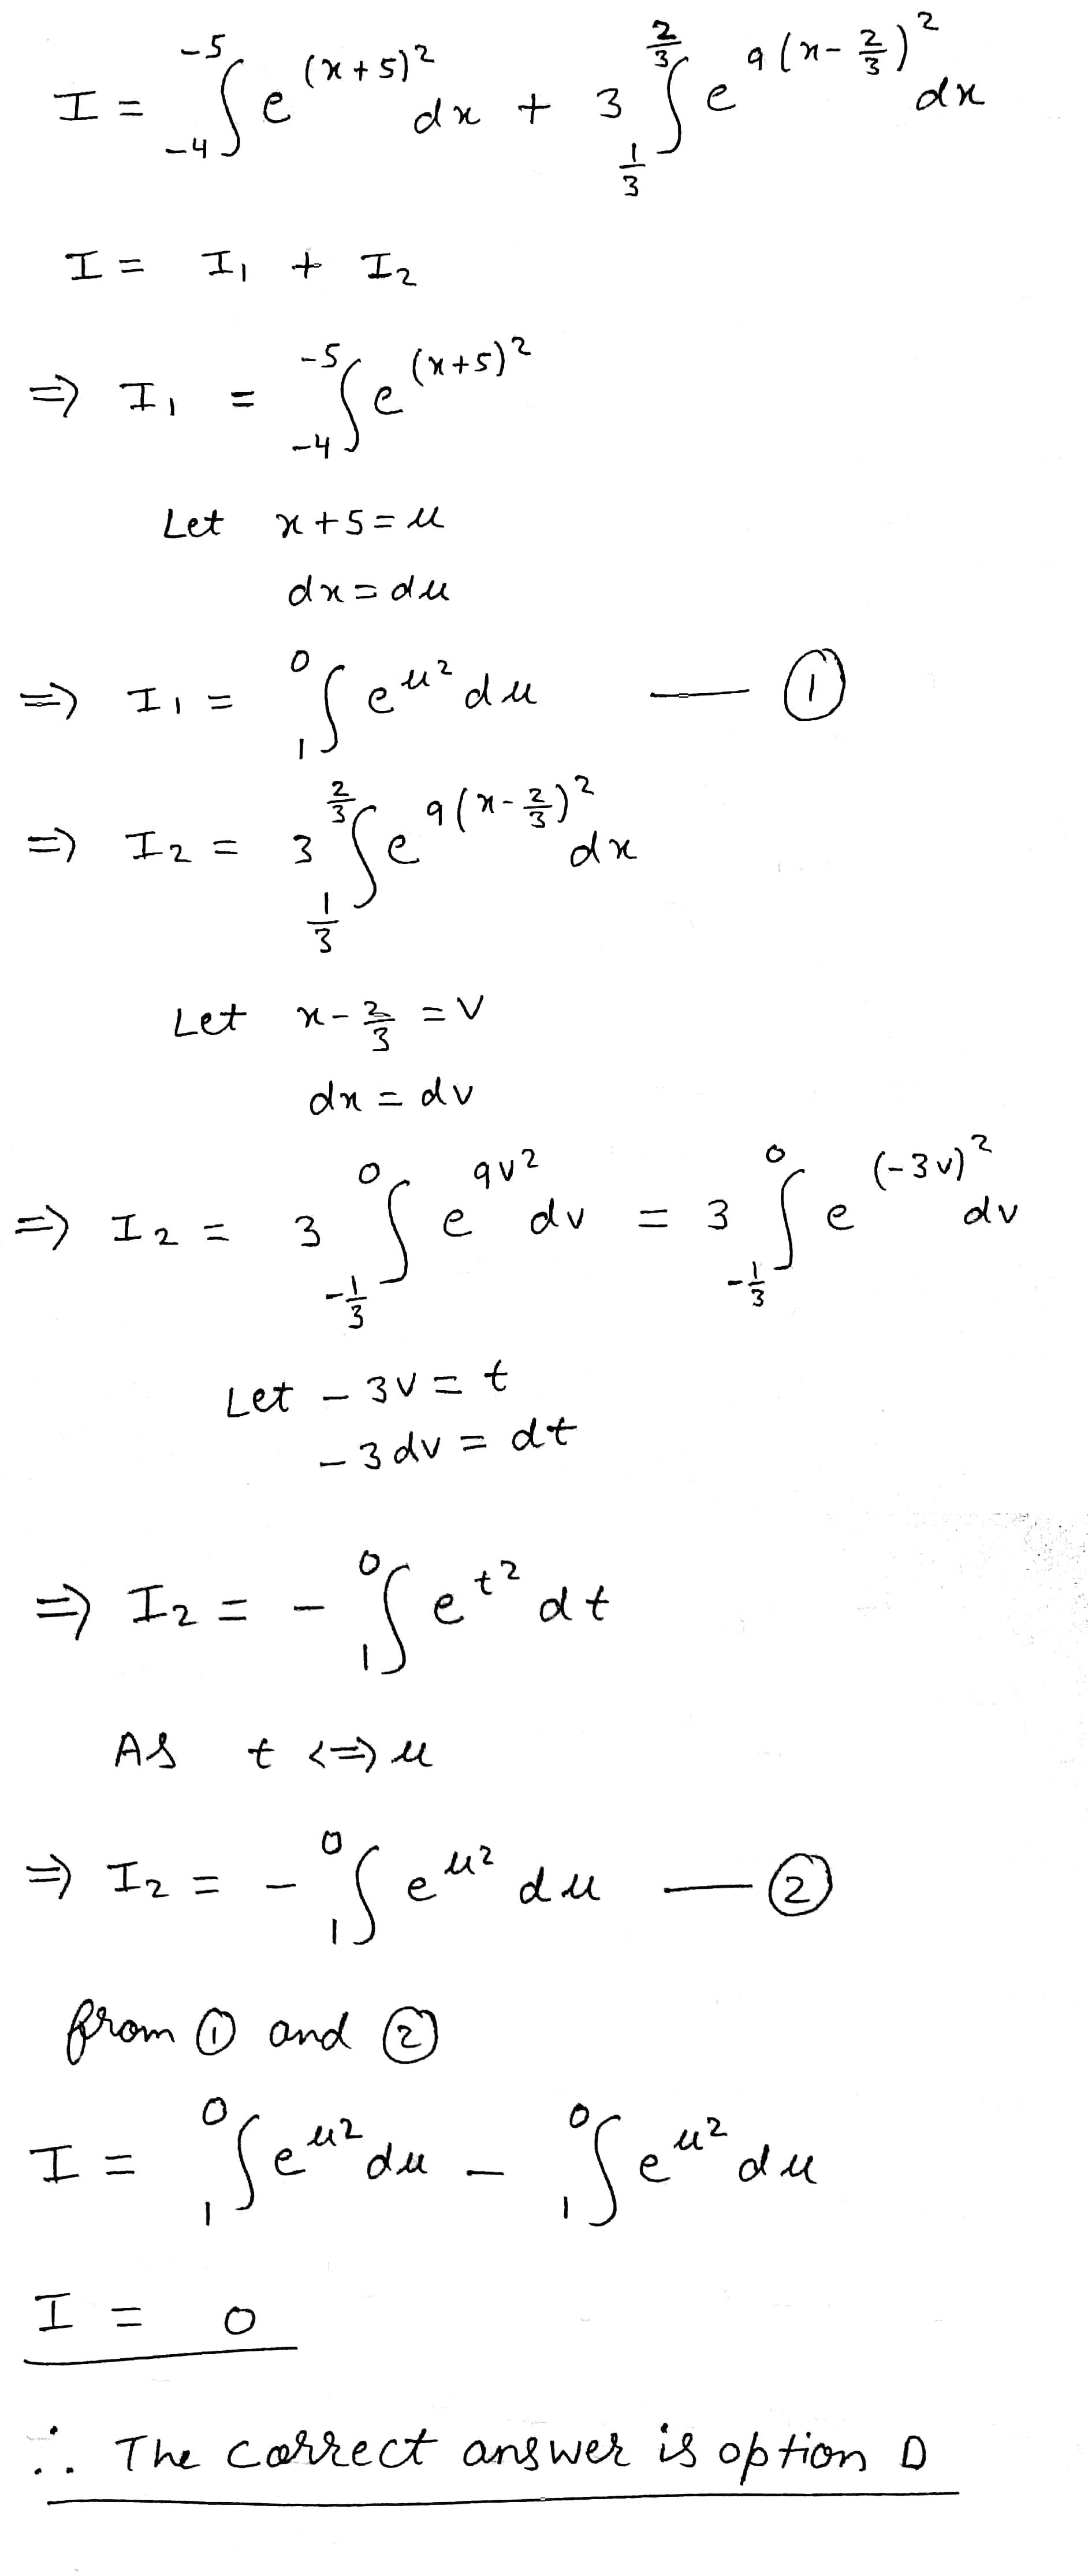 I = ∫_{-4}^{-5} e^{(x+5)^2} dx + 3 ∫_{1/3}^{2/3} e^{9(x-2/3)^2} dx
I = I₁ + I₂
⇒ I₁ = ∫_{-4}^{-5} e^{(x+5)^2}
Let x+5 = u
dx = du
⇒ I₁ = ∫_{1}^{0} e^{u^2} du — ①
⇒ I₂ = 3 ∫_{1/3}^{2/3} e^{9(x-2/3)^2} dx
Let x - 2/3 = v
dx = dv
⇒ I₂ = 3 ∫_{-1/3}^{0} e^{9v^2} dv = 3 ∫_{-1/3}^{0} e^{(-3v)^2} dv
Let -3v = t
-3dv = dt
⇒ I₂ = - ∫_{1}^{0} e^{t^2} dt
As t <=> u
⇒ I₂ = - ∫_{1}^{0} e^{u^2} du — ②
from ① and ②
I = ∫_{1}^{0} e^{u^2} du - ∫_{1}^{0} e^{u^2} du
I = 0
∴ The correct answer is option D